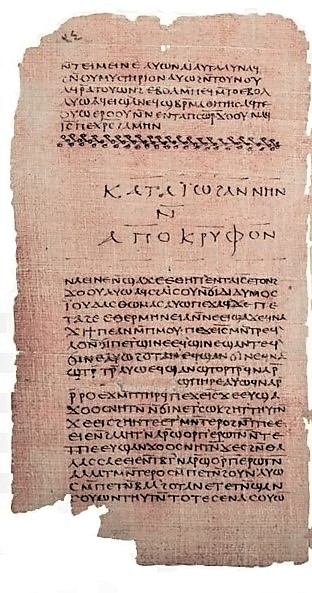 ⲛ̄ⲧⲉⲓⲙⲉⲓⲛⲉ ⲁⲩⲱ ⲛⲁⲓ ⲁⲩⲧⲁⲁⲩ ⲛⲁϥ
ϩⲛ̄ ⲟⲩⲙⲩⲥⲧⲏⲣⲓⲟⲛ ⲁⲩⲱ ⲛ̄ⲧⲟⲩⲛⲟⲩ
ⲁϥⲣ̄ⲁⲧⲟⲩⲱⲛϩ ⲉⲃⲟⲗ ⲙ̄ⲡⲉϥⲙ̄ⲧⲟ ⲉⲃⲟⲗ
ⲁⲩⲱ ⲁϥⲉⲓ ϣⲁ ⲛⲉϥϣⲃⲣ̄ⲙⲁⲑⲏⲧⲏⲥ ⲁϥⲧⲉ
ⲟⲩⲱ ⲉⲣⲟⲟⲩ ⲛ̄ⲛⲉⲛⲧⲁⲡⲥⲱ̄ⲣ̄ ϫⲟⲟⲩ ⲛⲁϥ
ⲓ̄ⲥ̄ ⲡⲉⲭ̄ⲣ̄ⲥ̄ ϩⲁⲙⲏⲛ
ⲕⲁⲧⲁ ⲓⲱϩⲁⲛⲛⲏⲛ
ⲛ̄
ⲁⲡⲟⲕⲣⲩⲫⲟⲛ
ⲛⲁⲉⲓ ⲛⲉ ⲛ̄ϣⲁϫⲉ ⲉⲑⲏⲡ ⲉⲛⲧⲁ ⲓ̄ⲥ̄ ⲉⲧⲟⲛϩ
ϫⲟⲟⲩ ⲁⲩⲱ ⲁϥⲥϩⲁⲓⲥⲟⲩ ⲛ̄ϭⲓ ⲇⲓⲇⲩⲙⲟⲥ
ⲓ̈ⲟⲩⲇⲁⲥ ⲑⲱⲙⲁⲥ ⲁⲩⲱ ⲡⲉϫⲁϥ ϫⲉ ⲡⲉ
ⲧⲁϩⲉ ⲉⲑⲉⲣⲙⲏⲛⲉⲓⲁ ⲛ̄ⲛⲉⲉⲓϣⲁϫⲉ ϥⲛⲁ
ϫⲓ ϯⲡⲉ ⲁⲛ ⲙ̄ⲡⲙⲟⲩ ⲡⲉϫⲉ ⲓ̄ⲥ̄ ⲙⲛ̄ⲧⲣⲉϥ
ⲗⲟ ⲛ̄ϭⲓ ⲡⲉⲧϣⲓⲛⲉ ⲉϥϣⲓⲛⲉ ϣⲁⲛⲧⲉϥ
ϭⲓⲛⲉ ⲁⲩⲱ ϩⲟⲧⲁⲛ ⲉϥϣⲁⲛϭⲓⲛⲉ ϥⲛⲁ
ϣⲧⲣ̄ⲧⲣ̄ ⲁⲩⲱ ⲉϥϣⲁⲛϣⲧⲟⲣⲧⲣ̄ ϥⲛⲁⲣ̄
ϣⲡⲏⲣⲉ ⲁⲩⲱ ϥⲛⲁⲣ̄
ⲣ̄ⲣⲟ ⲉϫⲙ̄ ⲡⲧⲏⲣϥ ⲡⲉϫⲉ ⲓ̄ⲥ̄ ϫⲉ ⲉⲩϣⲁ
ϫⲟⲟⲥ ⲛⲏⲧⲛ̄ ⲛ̄ϭⲓ ⲛⲉⲧⲥⲱⲕ ϩⲏⲧ ⲧⲏⲩⲧⲛ̄
ϫⲉ ⲉⲓⲥϩⲏⲏⲧⲉ ⲉⲧⲙⲛ̄ⲧⲉⲣⲟ ϩⲛ̄ ⲧⲡⲉ
ⲉⲉⲓⲉ ⲛ̄ϩⲁⲗⲏⲧ ⲛⲁⲣ̄ϣⲟⲣⲡ ⲉⲣⲱⲧⲛ̄ ⲛ̄ⲧⲉ
ⲧⲡⲉ ⲉⲩϣⲁⲛϫⲟⲟⲥ ⲛⲏⲧⲛ̄ ϫⲉ ⲥϩⲛ̄ ⲑⲁ
ⲗⲁⲥⲥⲁ ⲉⲉⲓⲉ ⲛ̄ⲧⲃ̄ⲧ ⲛⲁⲣ̄ϣⲟⲣⲡ ⲉⲣⲱⲧⲛ̄
ⲁⲗⲗⲁ ⲧⲙⲛ̄ⲧⲉⲣⲟ ⲥⲙ̄ⲡⲉⲧⲛ̄ϩⲟⲩⲛ ⲁⲩⲱ
ⲥⲙ̄ⲡⲉⲧⲛ̄ⲃⲁⲗ ϩⲟⲧⲁⲛ ⲉⲧⲉⲧⲛ̄ϣⲁⲛ
ⲥⲟⲩⲱⲛ ⲧⲏⲩⲧⲛ̄ ⲧⲟⲧⲉ ⲥⲉⲛⲁⲥⲟⲩⲱ